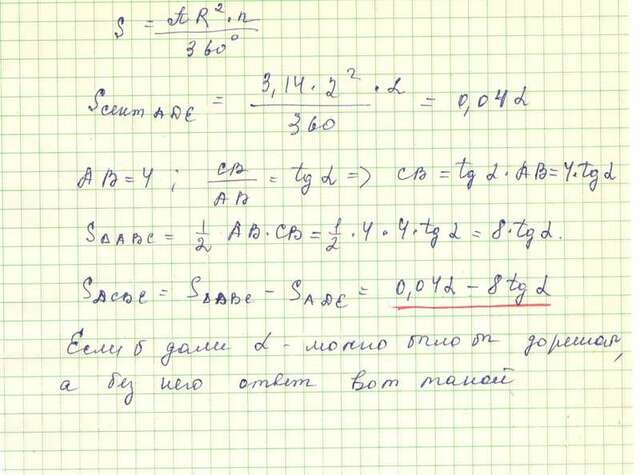 S = πR²·n / 360°
Sсект ADE = 3,14·2²·α / 360 = 0,04α
AB=4; CB / AB = tg α => CB = tg α·AB=4·tg α
S△ABC = 1/2 AB·CB = 1/2·4·4·tg α = 8·tg α.
SDCBE = S△ABC − SADE = 0,04α − 8tg α
Если б дали α - можно было бы дорешать,
а без него ответ вот такой